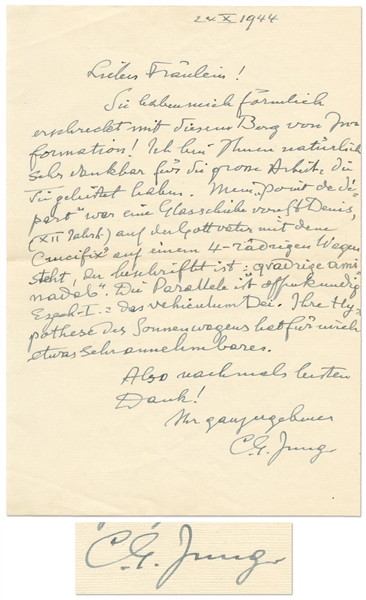 X 1944
Liebes Fräulein!
Sie haben mich förmlich
erschreckt mit diesem Berg von In-
formation! Ich bin Ihnen natürlich
sehr dankbar für die grosse Arbeit, die
Sie geleistet haben. Mein „point de dé-
part" war eine Glasscheibe von St Denis,
(XII Jahrh.) auf der Gottvater mit dem
Crucifix auf einem 4-rädrigen Wagen
steht, der beschriftet ist: „quadrige ami-
nadab". Die Parallele ist offenkundig
Ezech-I. = das vehiculum Dei. Ihre Hy-
pothese des Sonnenwagens hat für mich
etwas sehr annehmbares.
Also nochmals besten
Dank!
Ihr ganz ergebener
C. G. Jung
C. G. Jung